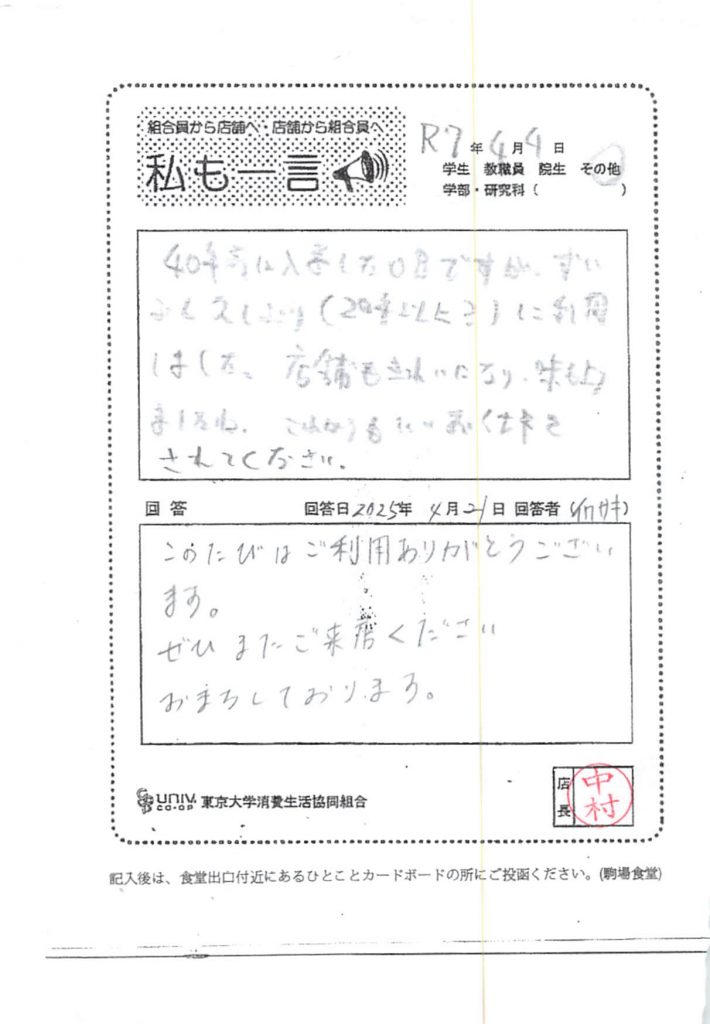 組合員から店舗へ・店舗から組合員へ
私も一言
R7年4月4日
学生 教職員 院生 その他
学部・研究科( )
40年前に入学したOBですが、ずい
ぶん久しぶり(20年以上?)に利用
しました。店舗もきれいになり、味も上
ましたね。これからも
されてください。
回答 回答日2025年4月21日 回答者( )
このたびはご利用ありがとうござい
ます。
ぜひまたご来店ください
おまちしております。
UNIV. CO-OP 東京大学消費生活協同組合
店長 中村
記入後は、食堂出口付近にあるひとことカードボードの所にご投函ください。(駒場食堂)